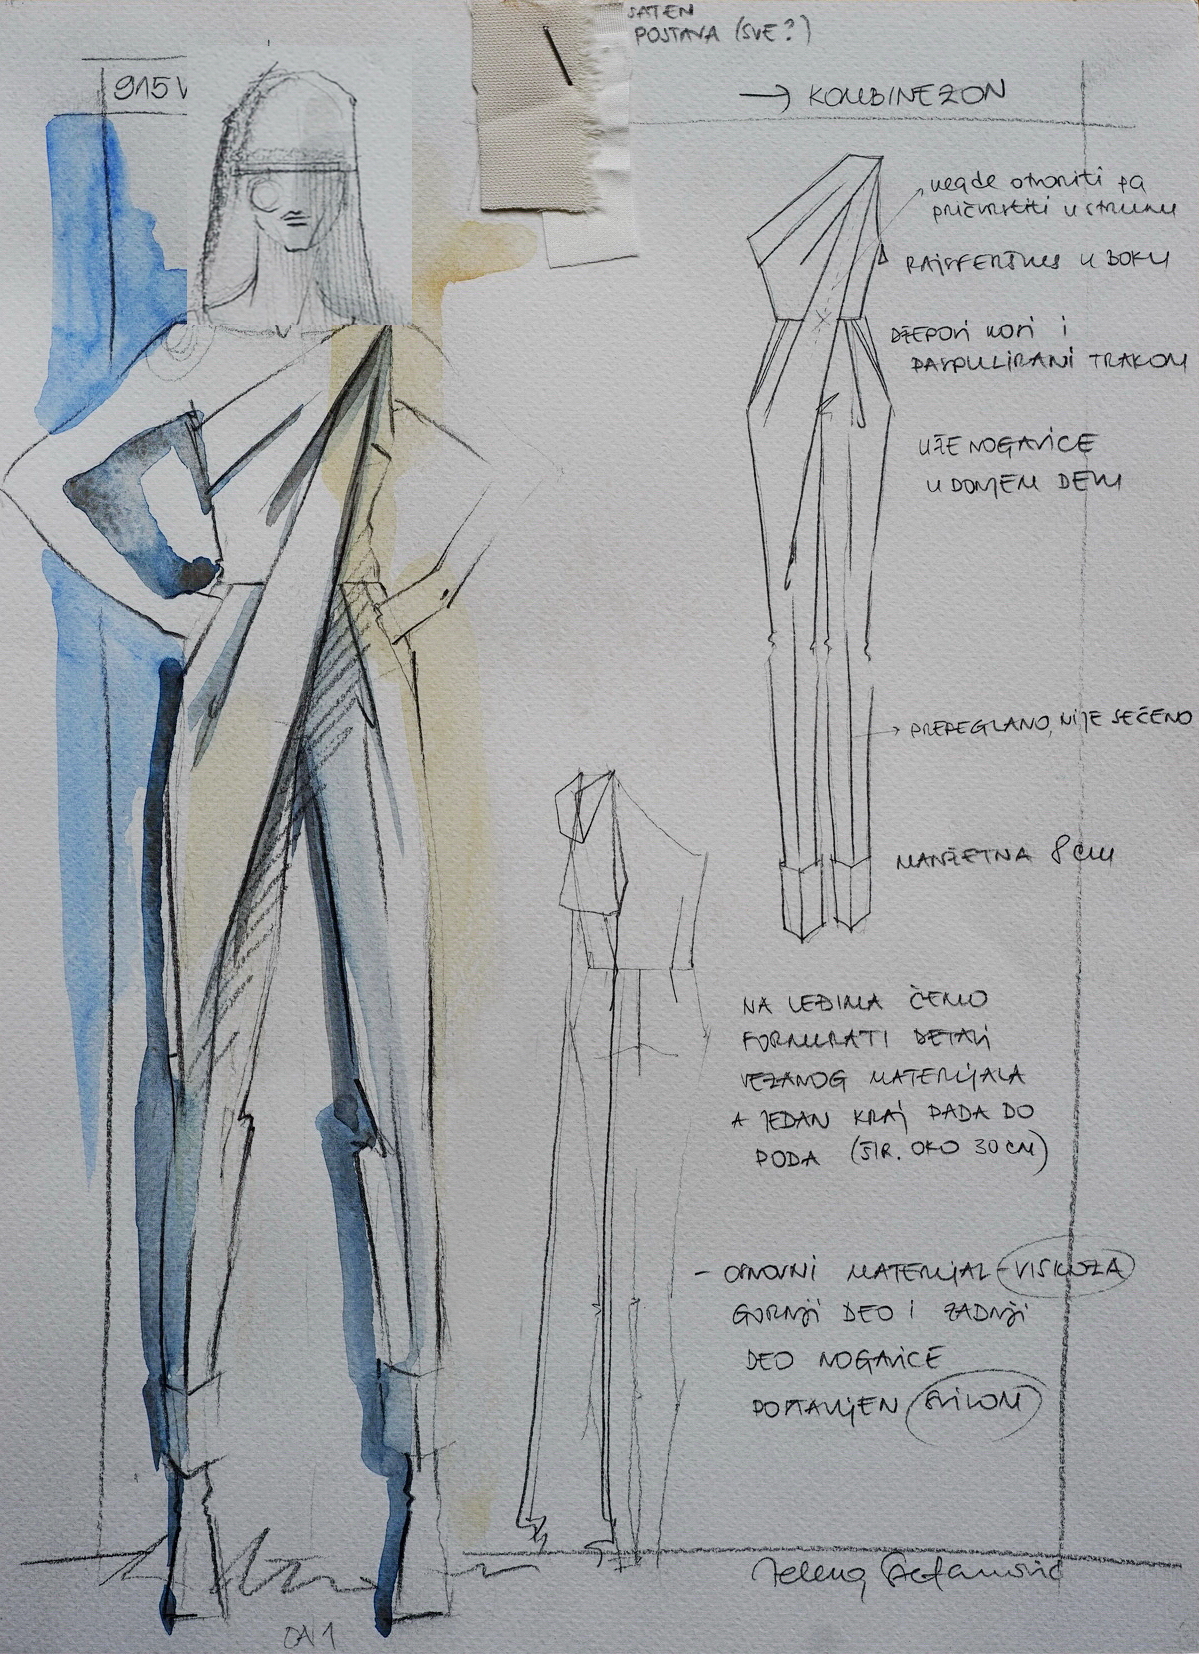 SATEN
POSTAVA (SVE?)
915V
→ KOMBINEZON
negde otvoriti pa
pričvrstiti u struku
RAJSFERŠLUS U BOKU
DŽEPOVI KOSI i
PASPULIRANI TRAKOM
UŽE NOGAVICE
U DONJEM DELU
→ PREPEGLANO, NIJE SEČENO
MANŽETNA 8cm
NA LEĐIMA ĆEMO
FORMIRATI DETALJ
VEZANOG MATERIJALA
A JEDAN KRAJ PADA DO
PODA (ŠIR. OKO 30CM)
- OSNOVNI MATERIJAL - VISKOZA
GORNJI DEO I ZADNJI
DEO NOGAVICE
POSTAVLJEN SVILOM
Jelena Stefanović